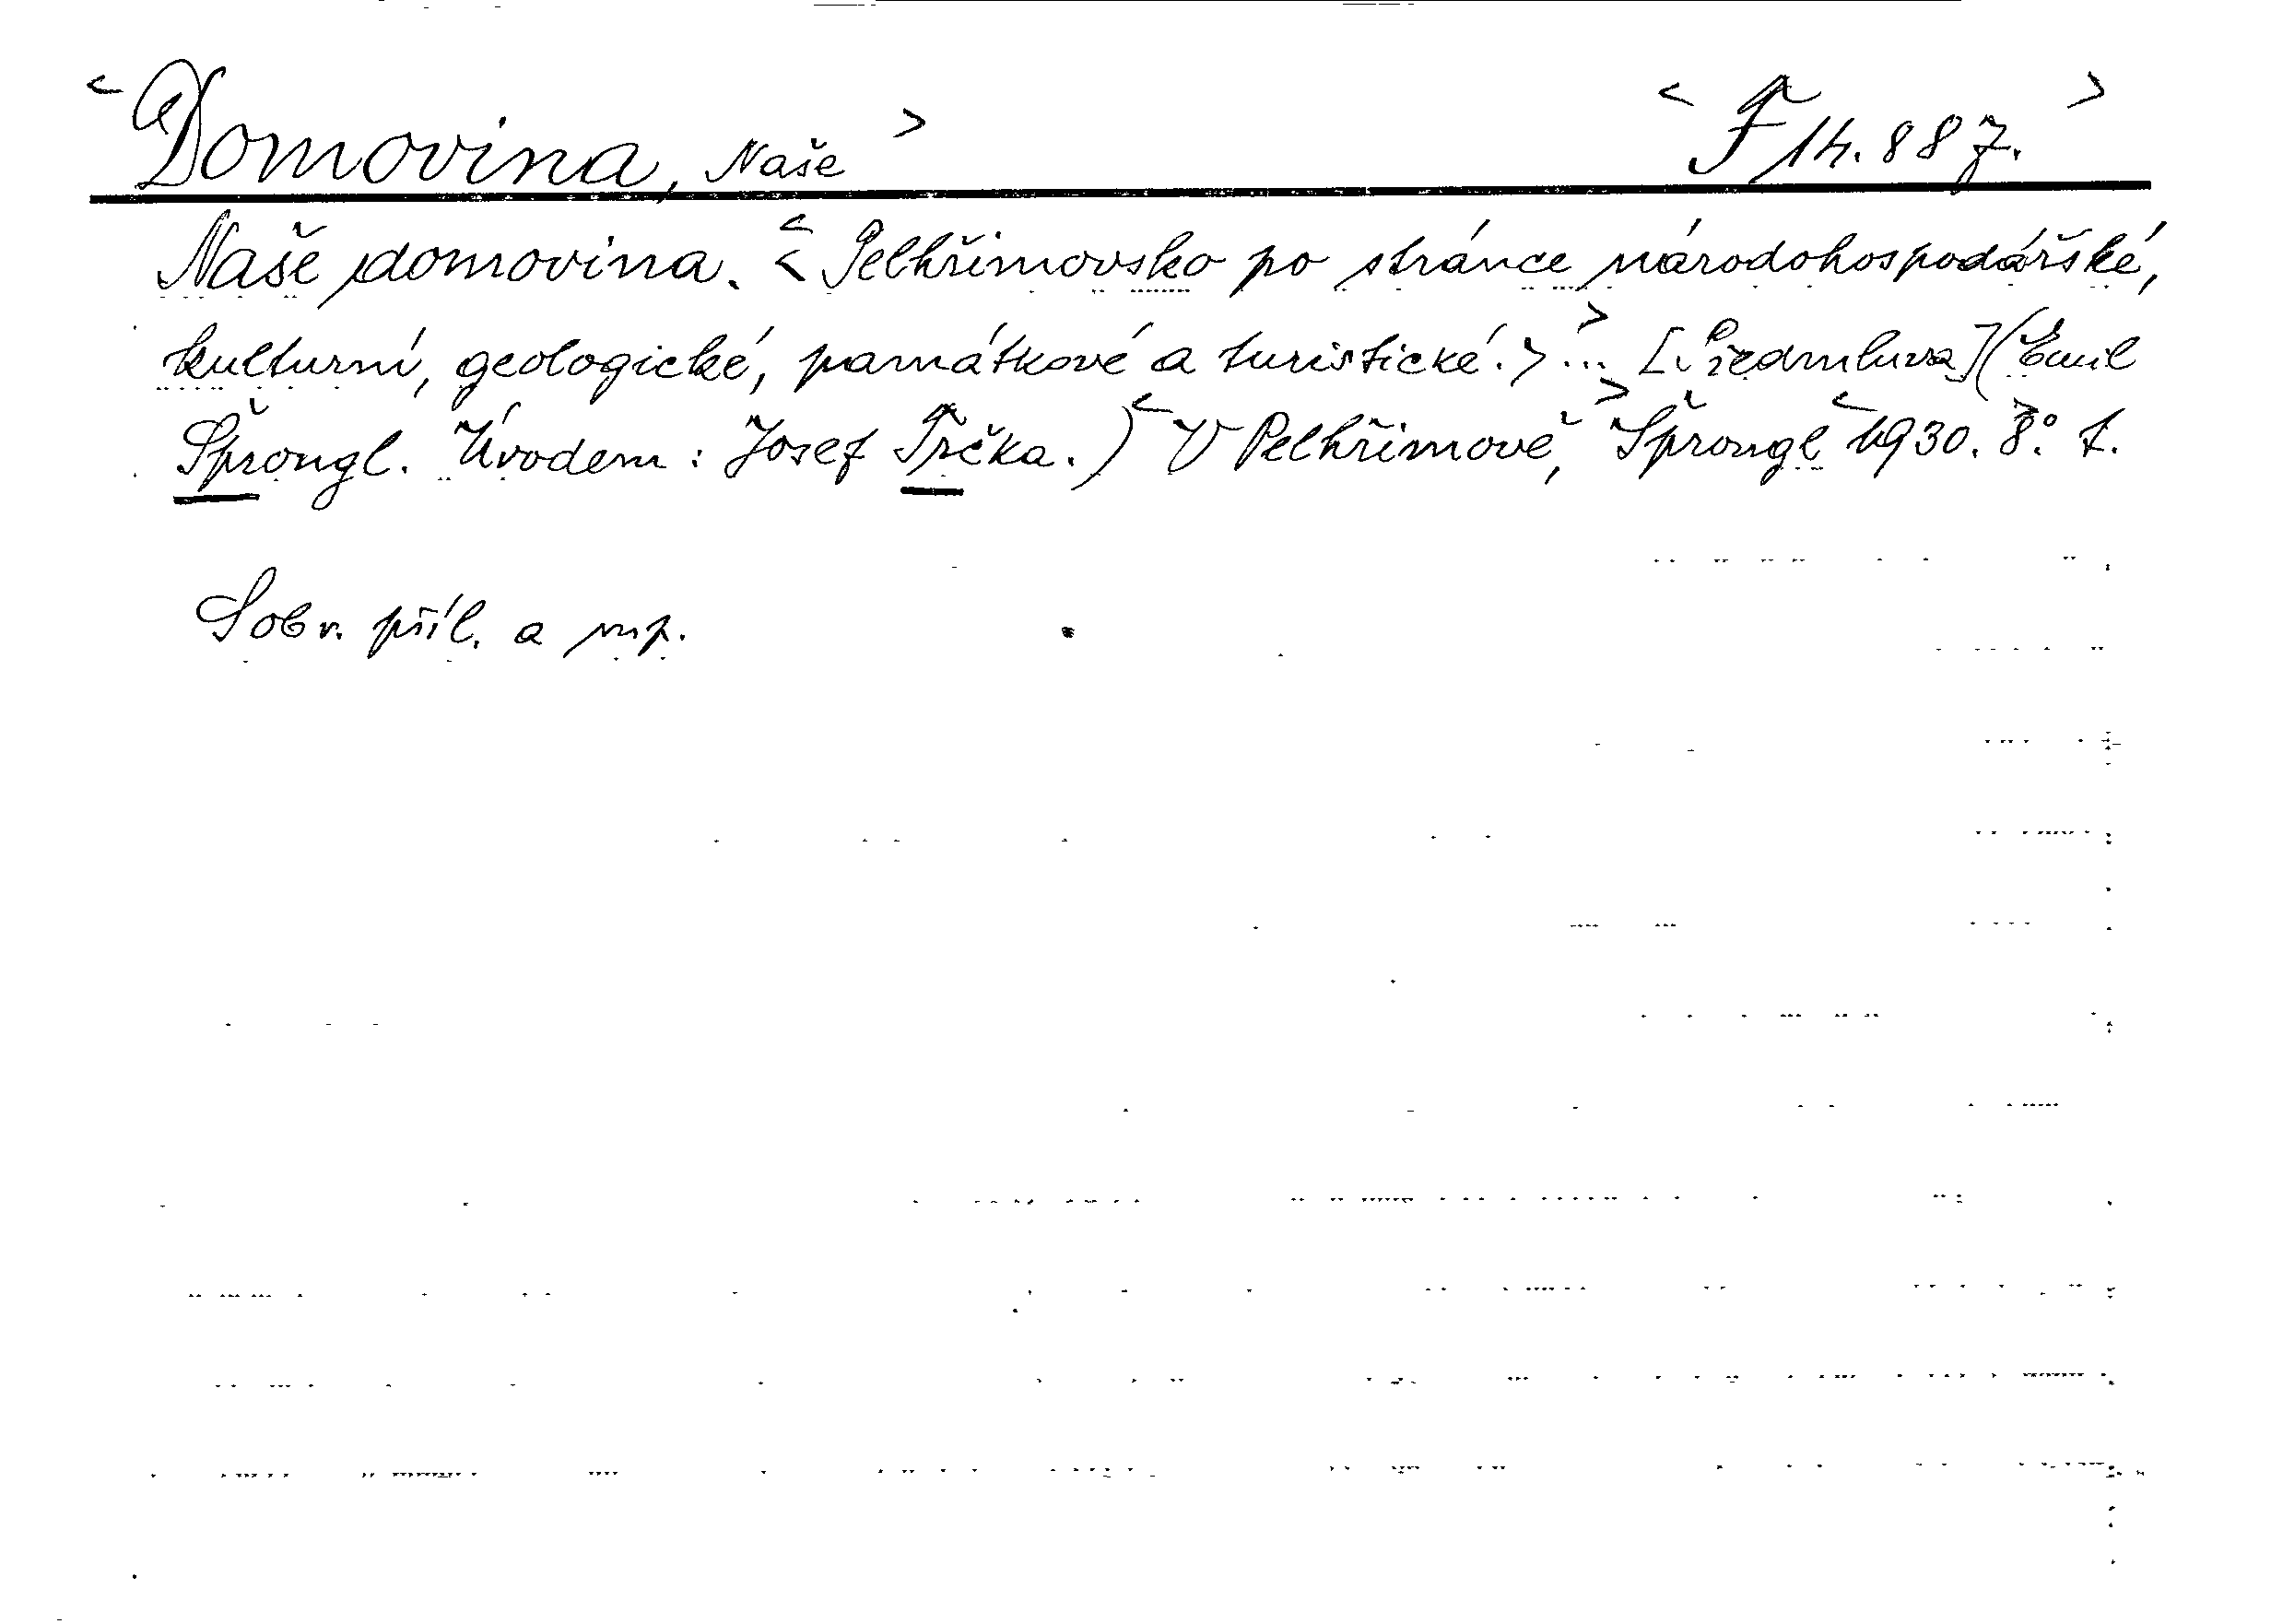 <Domovina, Naše> <F 14.887.>
Naše domovina. << Pelhřimovsko po stránce národohospodářské,
kulturní, geologické, památkové a turistické.>> ... [Předmluva] (Emil
Šprongl. Úvodem: Josef Trčka.) <V Pelhřimově,> Šprongl <1930. 8°.>
S obr. příl. a